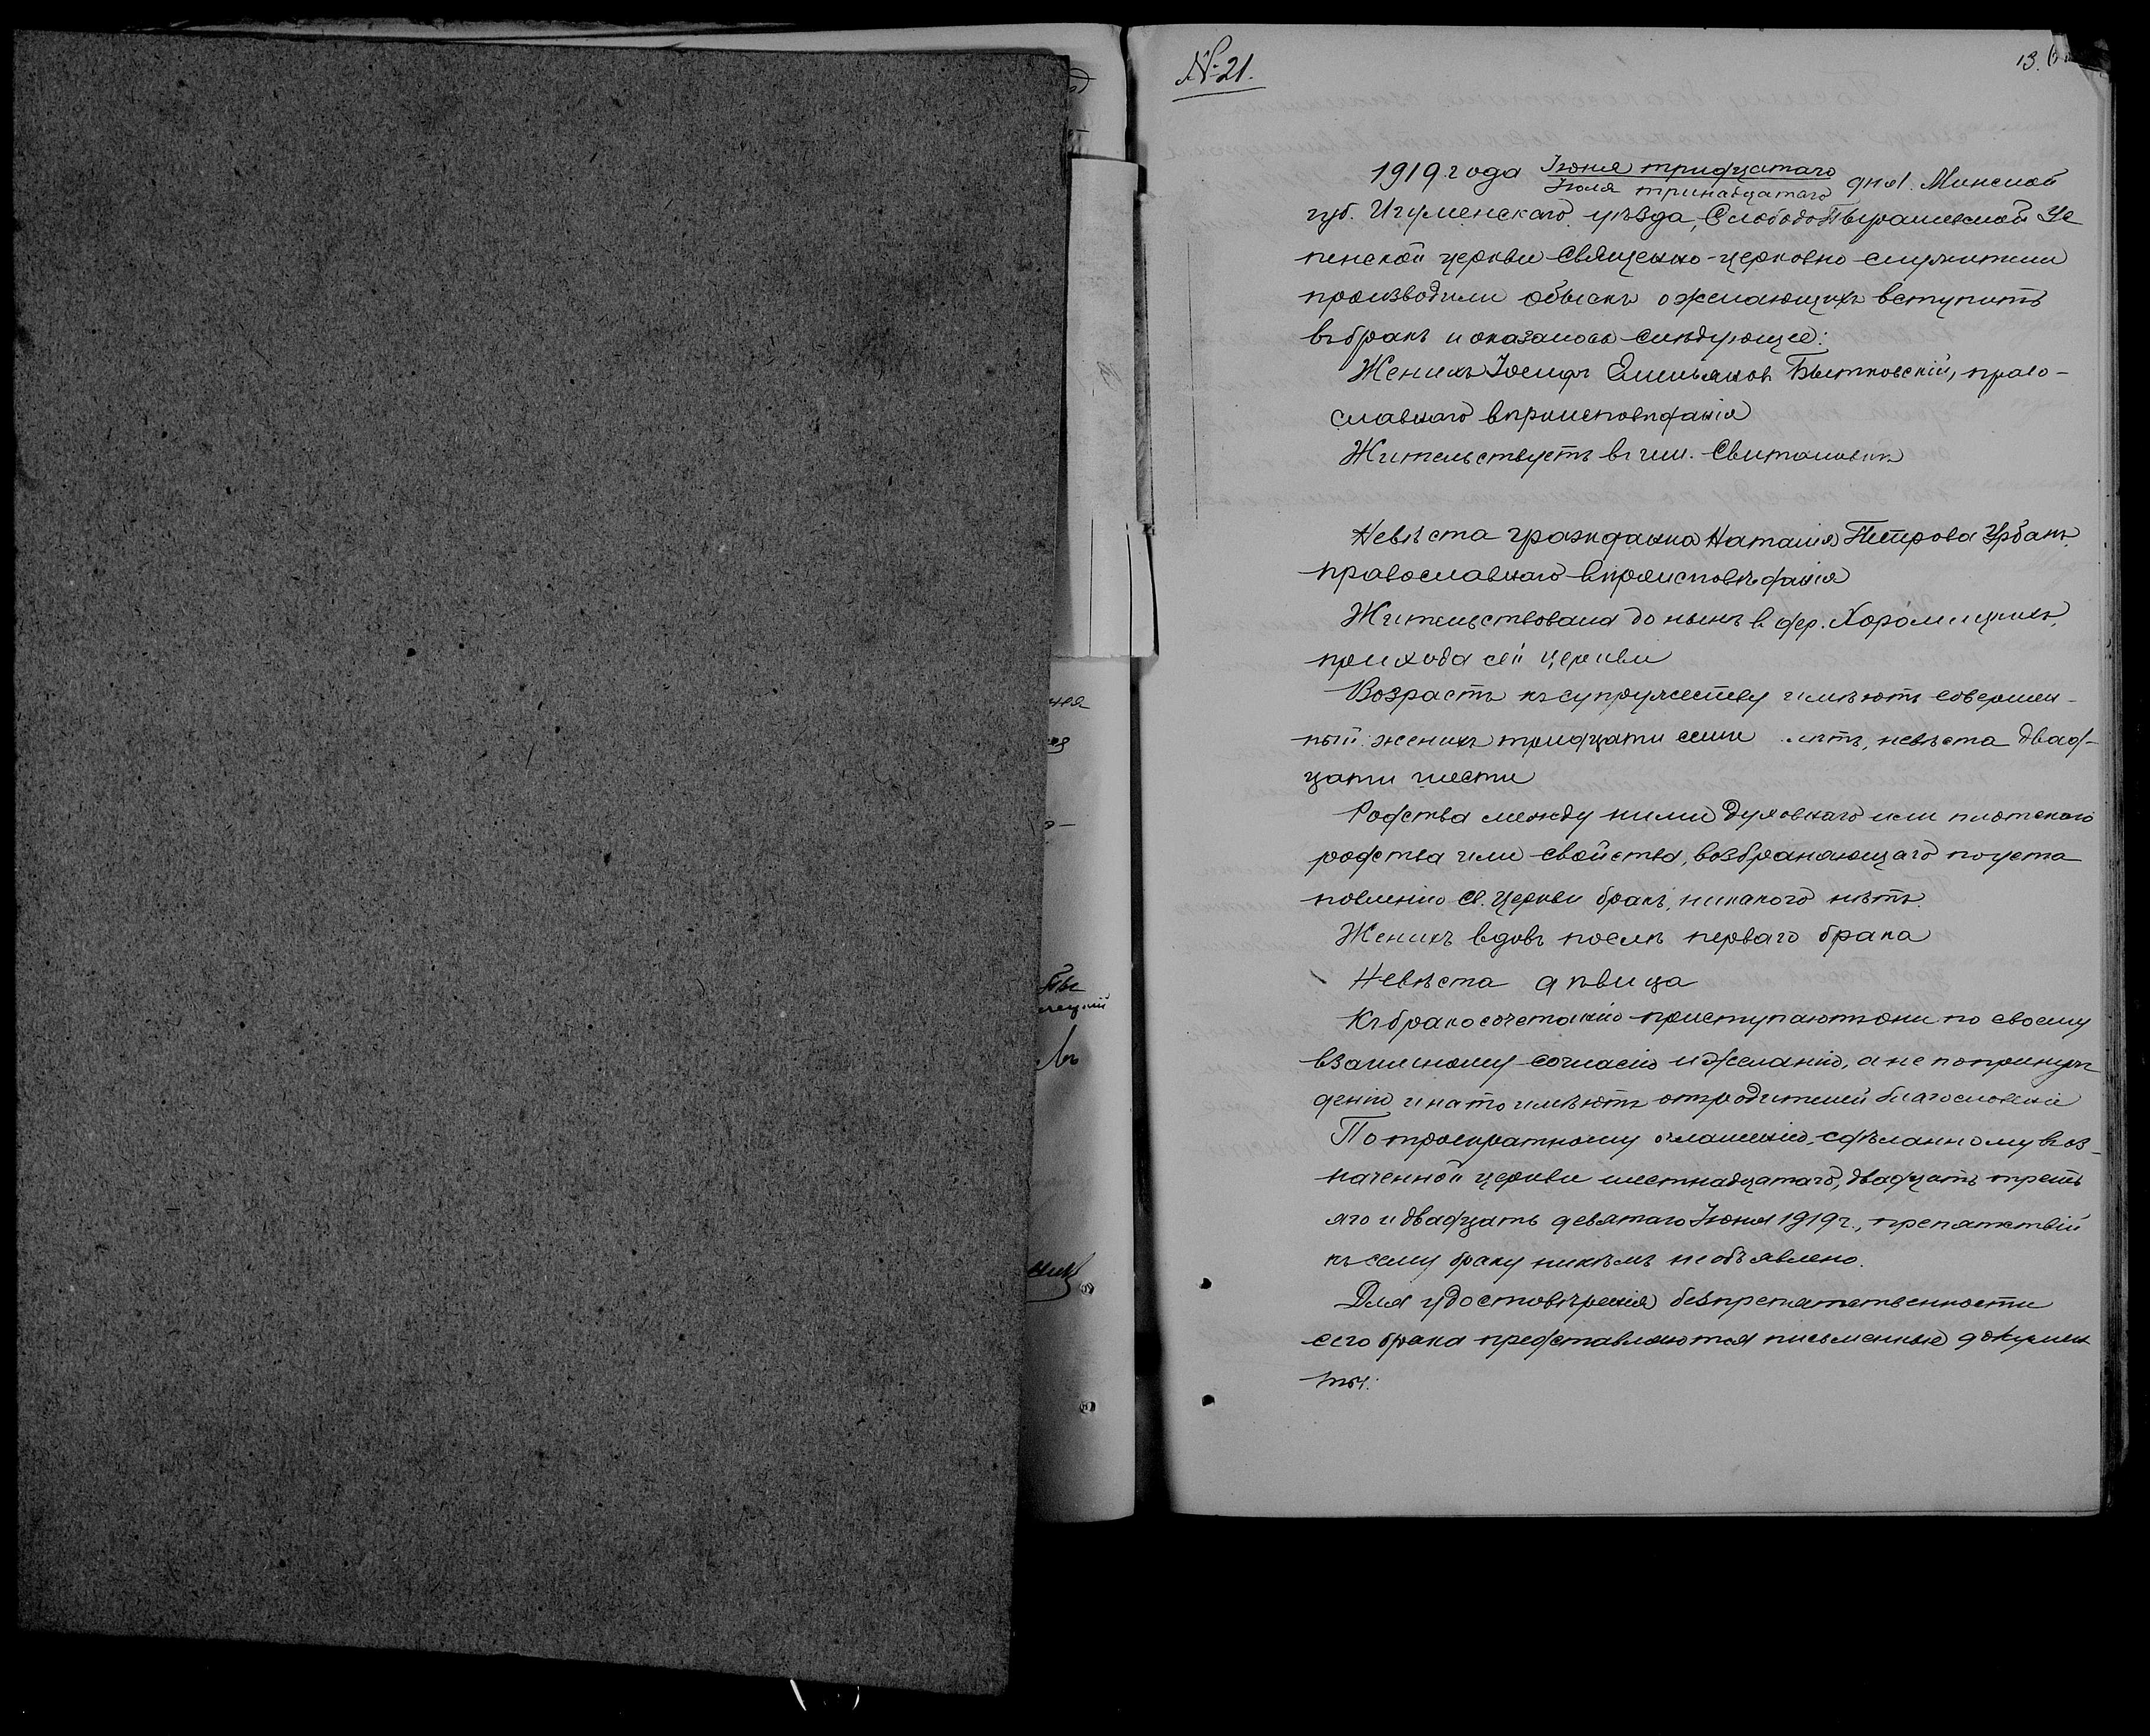 № 21.
13.
1919 года Іюня тридцатаго
Іюля тринадцатаго дня. Минской
губ. Игуменскаго уѣзда, Слободо Пырашевской Ус
пенской церкви священно-церковно служители
производили обыскъ о желающихъ вступить
въ бракъ и оказалось слѣдующее:
Женихъ Іосифъ Емельяновъ Бытковскій, право-
славнаго вѣроисповѣданія
Жительствуетъ въ им. Свитановкѣ
Невѣста гражданка Наталія Петрова Урбанъ
православнаго вѣроисповѣданія
Жительствовала до нынѣ въ дер. Хоромицкихъ,
прихода сей церкви
Возрастъ къ супружеству имѣютъ совершен-
ный: женихъ тридцати семи лѣтъ, невѣста двад-
цати шести
Родства между ними духовнаго или плотскаго
родства или свойства, возбраняющаго по уста
новленію св. церкви бракъ, никакого нѣтъ.
Женихъ вдовъ послѣ перваго брака
Невѣста дѣвица
Къ бракосочетанію приступаютъ они по своему
взаимному согласію и желанію, а не по принуж
денію и на то имѣютъ отъ родителей благословеніе
По троекратному оглашенію, сдѣланному въ оз-
наченной церкви шестнадцатаго, двадцать треть
яго и двадцать девятаго Іюня 1919 г., препятствій
къ сему браку никѣмъ не объявлено.
Для удостовѣренія безпрепятственности
сего брака представляются письменные докумен
ты: